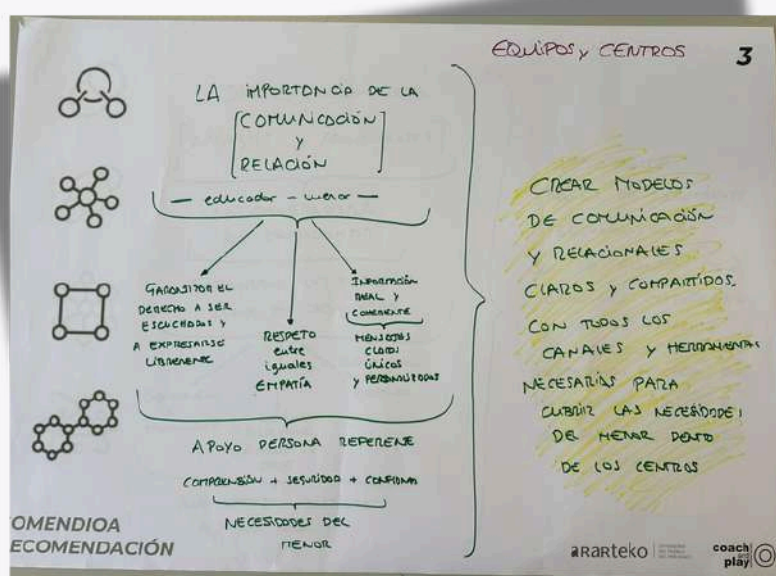 EQUIPOS y CENTROS
3
LA IMPORTANCIA DE LA
[COMUNICACIÓN
y
RELACIÓN]
— educador — menor —
GARANTIZAR EL
DERECHO A SER
ESCUCHADOS Y
A EXPRESARSE
LIBREMENTE
RESPETO
entre
iguales
EMPATÍA
INFORMACIÓN
REAL Y
COHERENTE
MENSAJES
CLAROS
ÚNICOS
Y PERSONALIZADOS
APOYO PERSONA REFERENE
COMPRENSIÓN + SEGURIDAD + CONFIANZA
NECESIDADES DEL
MENOR
CREAR MODELOS
DE COMUNICACIÓN
Y RELACIONALES
CLAROS Y COMPARTIDOS.
CON TODOS LOS
CANALES Y HERRAMIENTAS
NECESARIAS PARA
CUBRIR LAS NECESIDADES
DEL MENOR DENTO
DE LOS CENTROS
OMENDIOA
ECOMENDACIÓN
ARARteko
coach
and
play